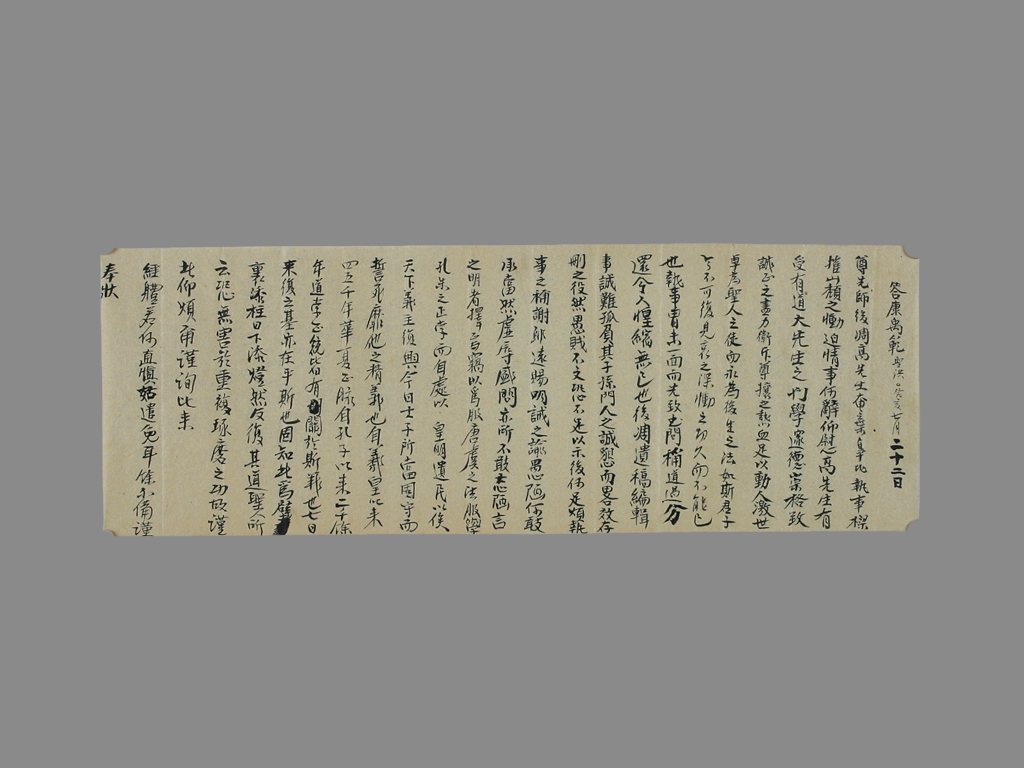 答康禹範 聖洪 癸亥七月二十二日
尊先師後凋高先生奄棄辛此執事樑
摧山頹之慟迫情事何辭仰慰高先生有
受有道大先生之門學邃德崇格致
誠正之盡力衛斥尊攘之熱血足以動人激世
專為聖人之使而永為後生之法如斯君子
今不可復見哀之深慟之切久而不能已
也執事曹未一面而先致書問稱道過分
還令人惶縮無已也後凋遺稿編輯
事誠難孤負其子孫門人之誠懇而畧效存
刪之役然愚賤不文恐不足以示後何足煩執
事之稱謝耶遠賜明誠之諭愚陋何敢
承當然虛辱盛問亦所不敢志陋言
之明者擇焉窃以為服唐虞之法服學
孔朱之正學而自處以 皇明遺民以俟
天下義主復興今日士子所當固守而
誓死靡他之精義也自羲皇以來
四五千年華夏正脉自孔子以來二千餘
年道學正統皆有關於斯義也七日
來復之基亦在乎斯也固知此為譬
裏漆柱日下添燈然反復其道聖人所
云恐無害於重複琢磨之功故謹
此仰煩甫謹詢比来
經體若何直愼姑遣免耳餘不備謹
奉狀